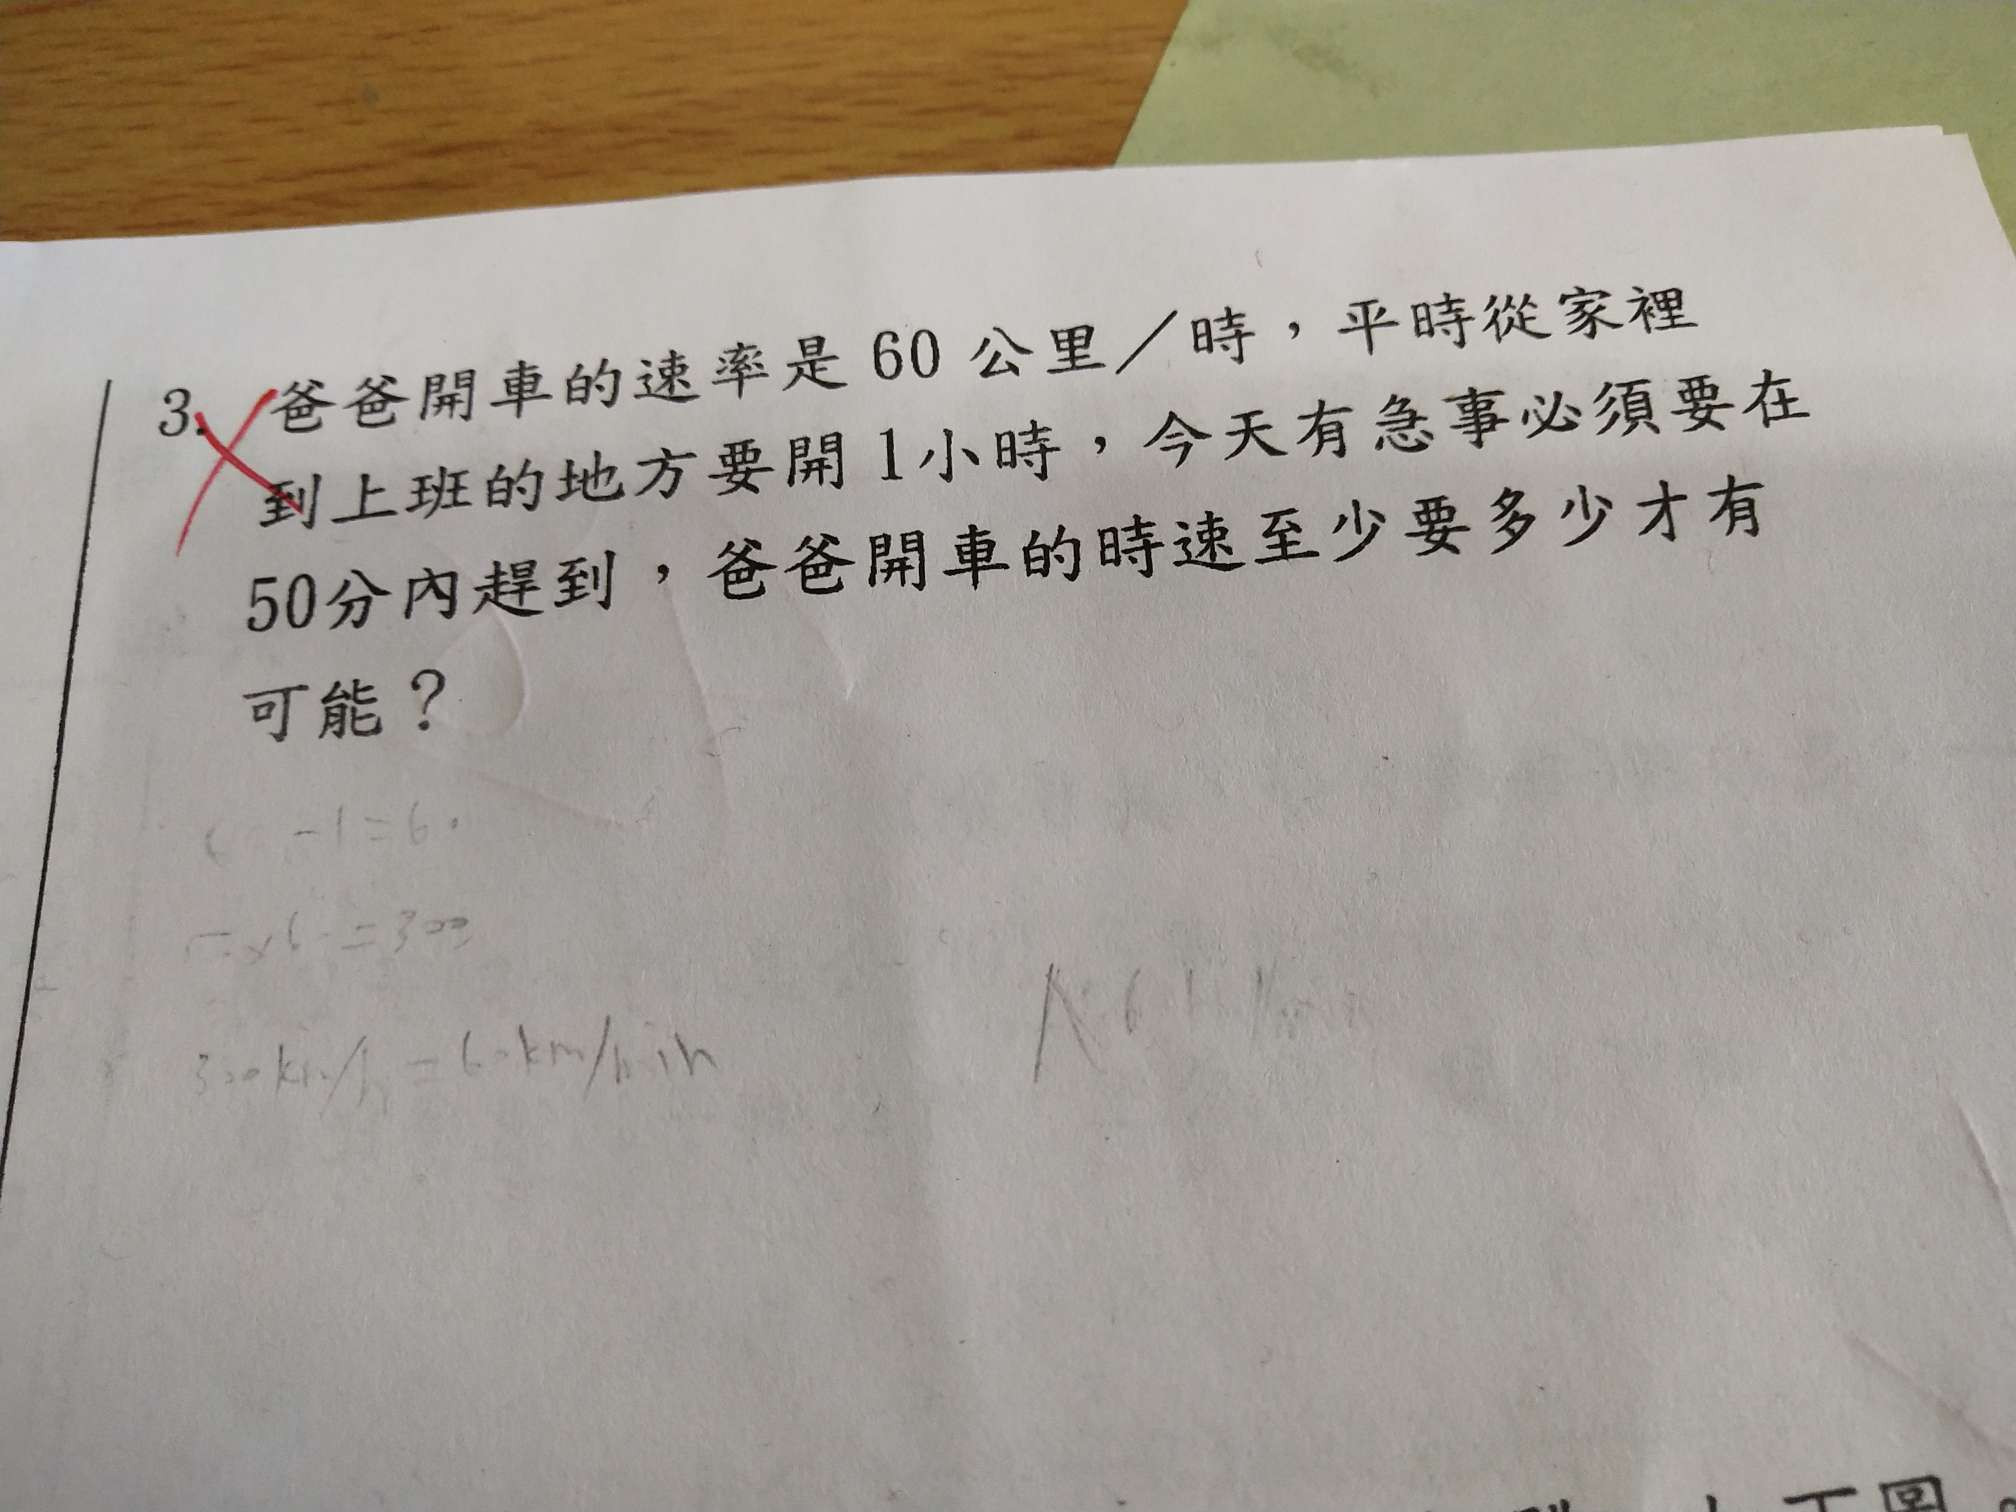 3. 爸爸開車的速率是 60 公里／時，平時從家裡
到上班的地方要開 1 小時，今天有急事必須要在
50分內趕到，爸爸開車的時速至少要多少才有
可能？
-1=60
=300
300km/h = 60km/min